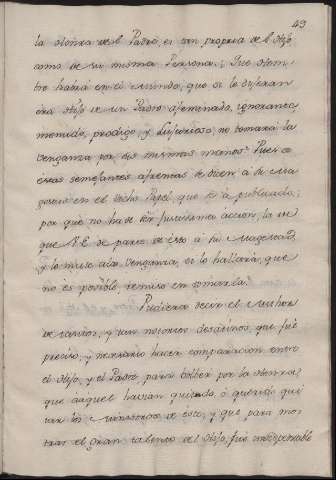 49
la Honra del Padre, es tan propria de el Hijo
como de su misma Persona. Que Hom-
bre habrá en el Mundo, que si le dixeran
era Hijo de un Padre afeminado, ignorante
menudo, prodigo y Luxurioso, no tomará la
venganza por sus mismas manos? Pues
estas semejantes afrentas se dicen a su Ma-
gestad en el dicho Papel, que se ha publicado;
por que no ha de ser justissima accion, la
que V.E. de parte de esto a su Magestad,
y lo mismo a la venganza, si lo hallará, que
no es posible, remiso en tomarla.
Pudiera decir el Author
de tantos, y tan notorios desatinos, que fué
preciso, y necesario hacer comparacion entre
el Hijo, y el Padre, para bolber por la Honra
que aquel havian quitado, ó querido qui-
tar los Ministros de este, y que para mos-
trar el gran talento del Hijo, fue indispensable